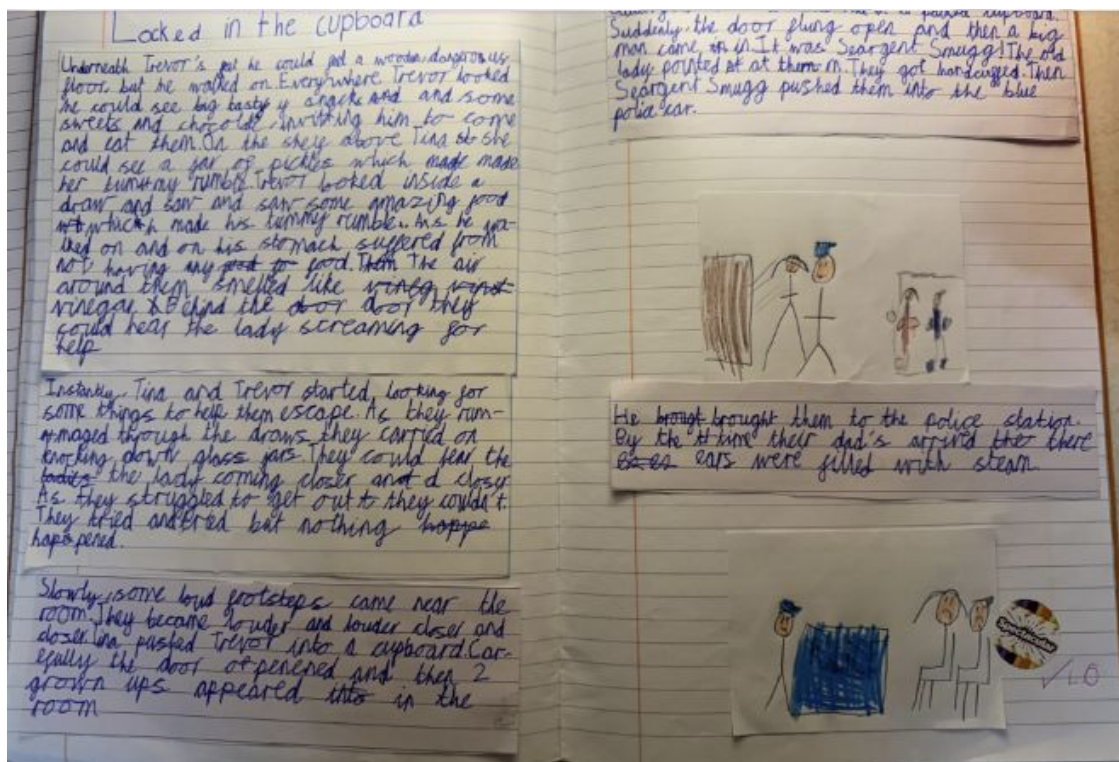 Locked in the cupboard
Underneath Trevor's he could a wooden dangerous
floor but he walked on. Everywhere Trevor looked
he could see big tasty and and some
sweets and chocolde, inviting him to come
and eat them. On the above Tina she
could see a jar of pickles which made made
her tummy rumble. Trevor looked inside a
draw and saw and saw some amazing food
which made his tummy rumble. As he wa-
lked on and on his stomach suffered from
not having any food to food. Then The air
around them smelled like vineg
vinegar. Behind the door door they
could hear the lady screaming for
help
Instantly, Tina and Trevor started looking for
some things to help them escape. As they rum-
maged through the draws they carried on
knocking down glass jars. They could hear the
ladies the lady coming closer and closer
As they struggled to get out they couldn't.
They tried and tried but nothing happe
happened.
Slowly, some loud footsteps came near the
room. They became louder and louder closer and
closer. Tina pushed Trevor into a cupboard. Car-
efully the door openened and then 2
grown ups appeared into in the
room
cupboard.
Suddenly, the door flung open and then a big
man came in. It was Seargent Smugg! The old
lady pointed at at them. They got handcuffed. Then
Seargent Smugg pushed them into the blue
police car.
He brought brought them to the police station.
By the time their dad's arrived the there
ears were filled with steam.
Spectacular